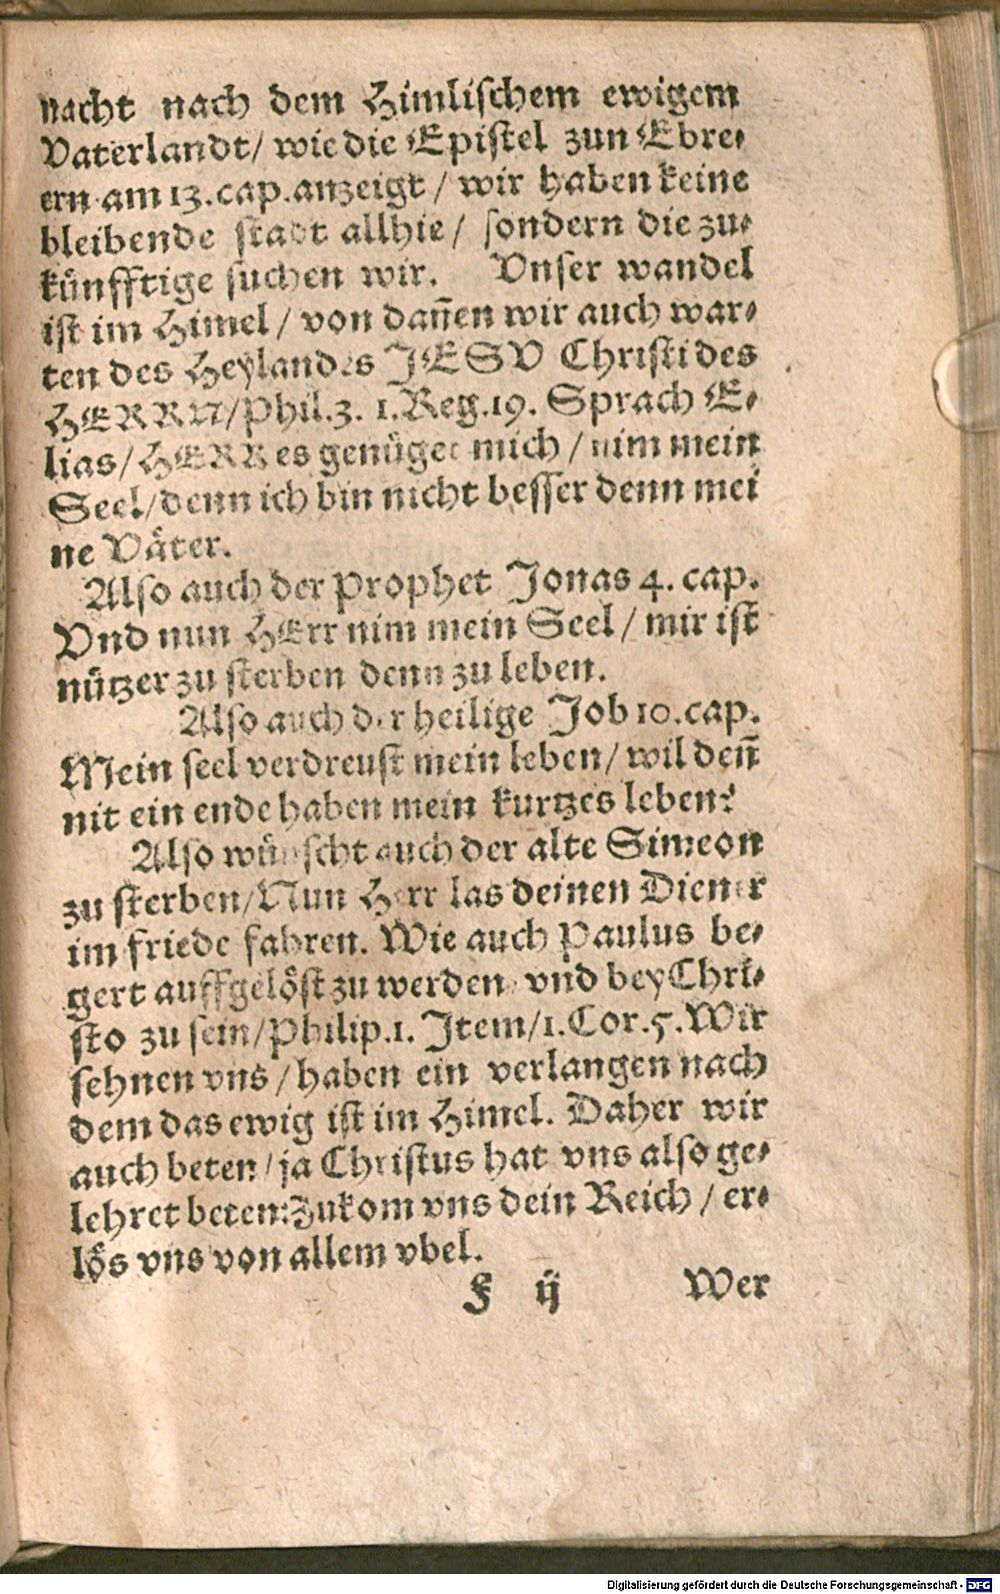 nacht nach dem Himlischem ewigem
Vaterlandt/ wie die Epistel zun Ebre⸗
ern am 13. cap. anzeigt / wir haben keine
bleibende stadt allhie / sondern die zu⸗
künfftige suchen wir. Vnser wandel
ist im Himel / von dañen wir auch war⸗
ten des Heylandes JESV Christi des
HERRN/ Phil. 3. 1. Reg. 19. Sprach E⸗
lias/ HERR es genüget mich / nim mein
Seel/ denn ich bin nicht besser denn mei
ne Väter.
Also auch der Prophet Jonas 4. cap.
Vnd nun HErr nim mein Seel / mir ist
nützer zu sterben denn zu leben.
Also auch der heilige Job 10. cap.
Mein seel verdreust mein leben/ wil deñ
nit ein ende haben mein kurtzes leben?
Also wünscht auch der alte Simeon
zu sterben/ Nun Herr las deinen Diener
im friede fahren. Wie auch Paulus be⸗
gert auffgelöst zu werden vnd bey Chri⸗
sto zu sein/ Philip. 1. Jtem/ 1. Cor. 5. Wir
sehnen vns / haben ein verlangen nach
dem das ewig ist im Himel. Daher wir
auch beten / ja Christus hat vns also ge⸗
lehret beten: Zukom vns dein Reich / er⸗
lös vns von allem vbel.
F ij Wer
Digitalisierung gefördert durch die Deutsche Forschungsgemeinschaft - DFG